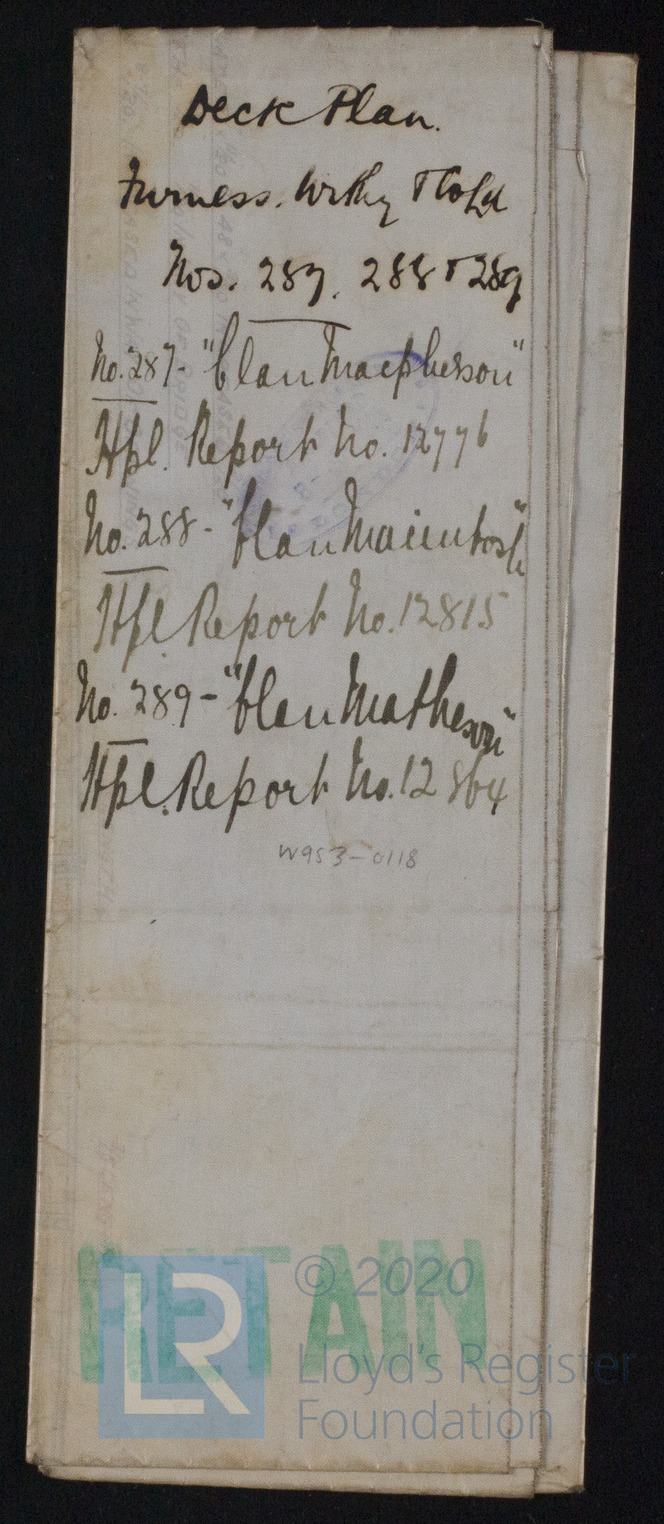 Deck Plan.
Furness. Withy & Co Ld
Nos. 287. 288 & 289
No. 287 - "Clan Macpherson"
Hpl. Report No. 12776
No. 288 - "Clan Macintosh"
Hpl. Report No. 12815
No. 289 - "Clan Matheson"
Hpl. Report No. 12864
W953-0118
RETAIN
LR
© 2020
Lloyd's Register
Foundation